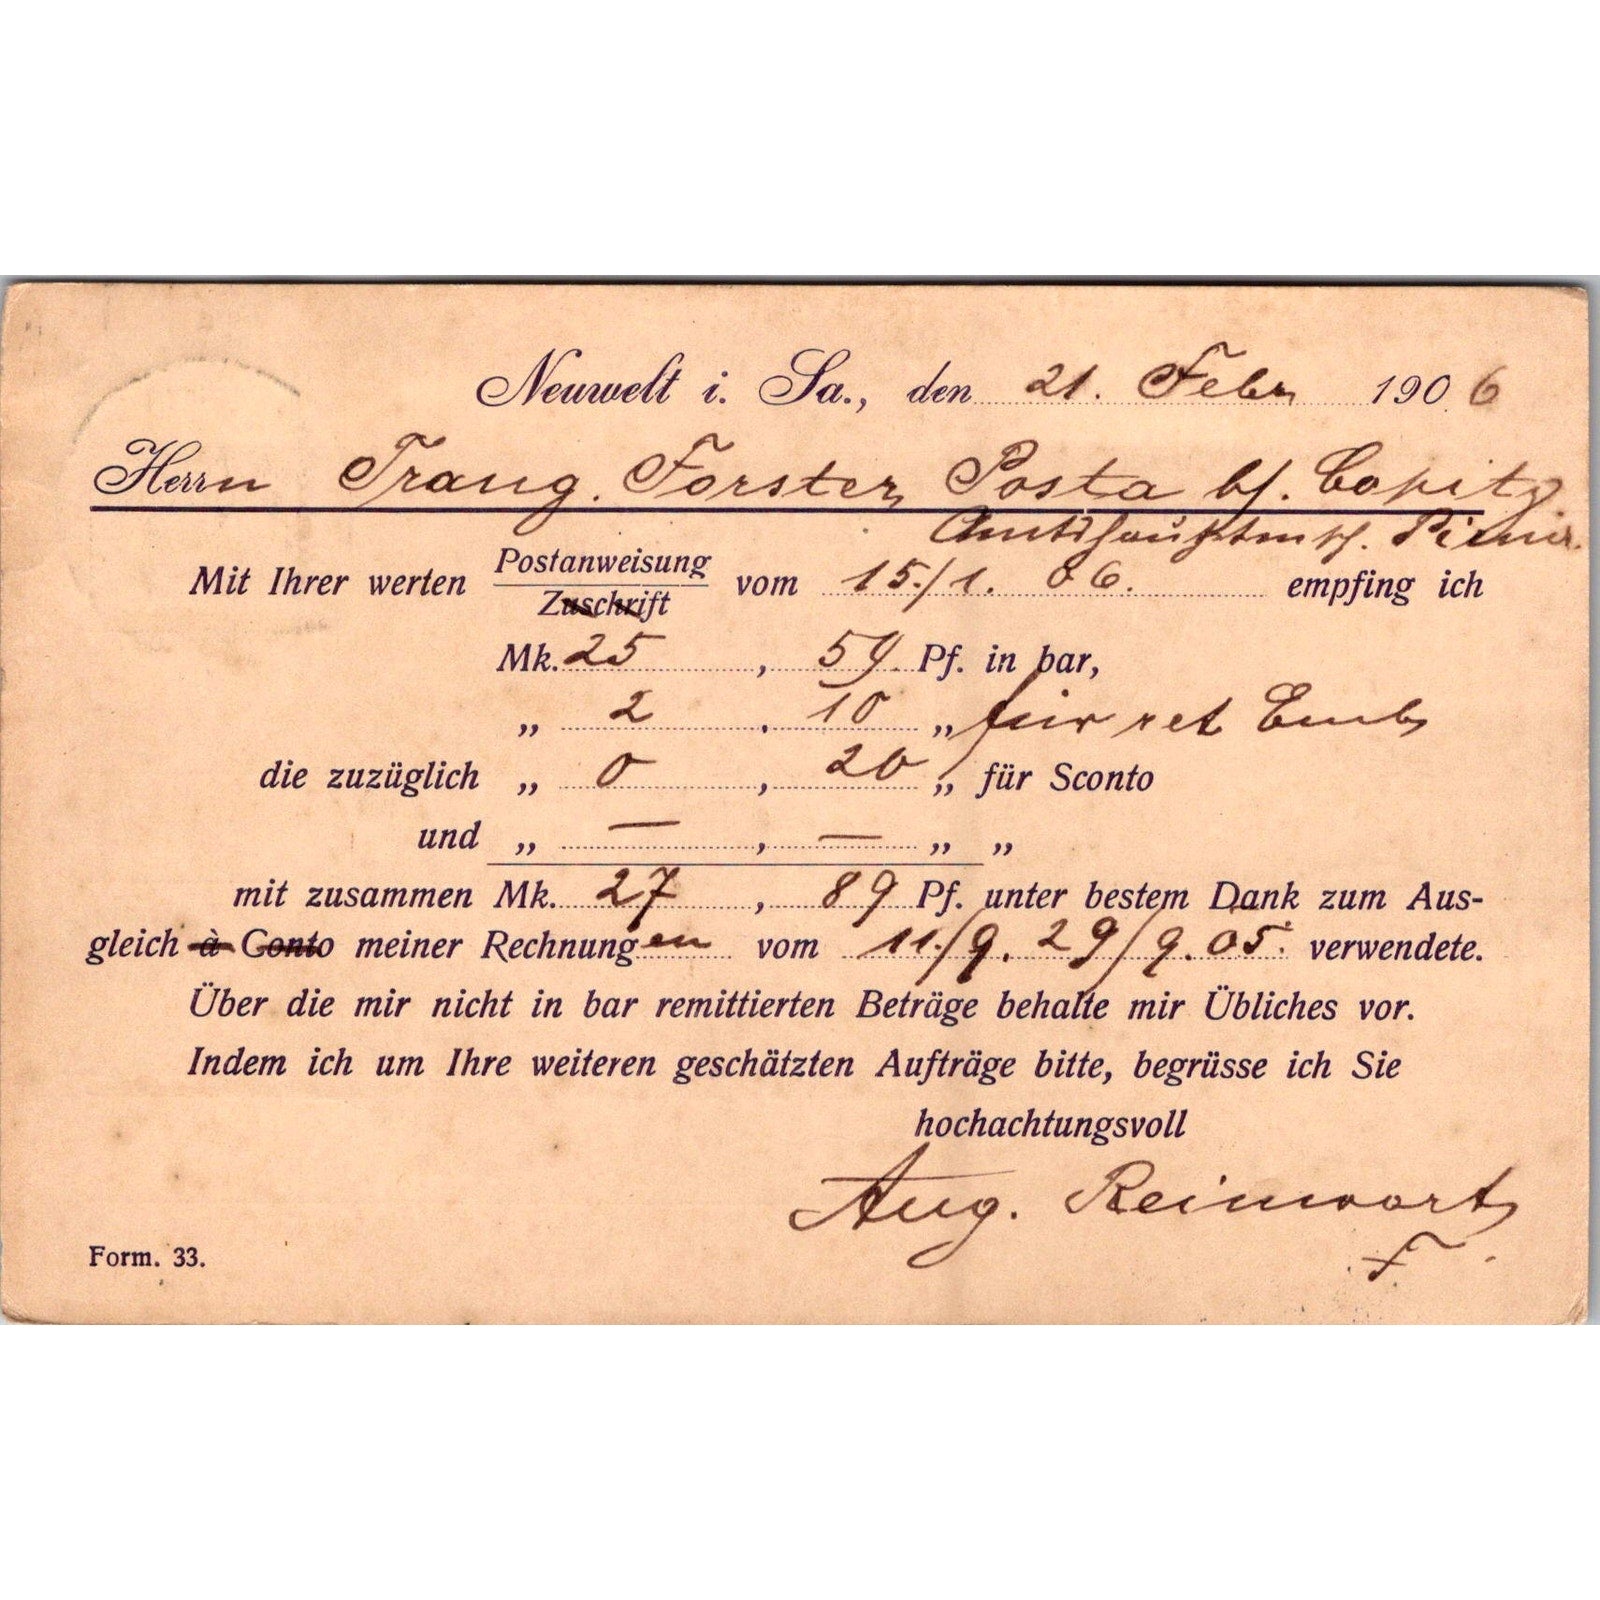 Neuwelt i. Sa., den 21. Febr 1906
Herrn Traug. Forster, Posta b/. Copitz
Amtshauptmsch. Pirna.
Mit Ihrer werten Postanweisung vom 15./1. 06. empfing ich
Zuschrift
Mk. 25, 59 Pf. in bar,
„ 2, 10 „ für ret Emb
die zuzüglich „ 0, 20 „ für Sconto
und „ —, — „ „
mit zusammen Mk. 27, 89 Pf. unter bestem Dank zum Aus-
gleich à Conto meiner Rechnungen vom 11./9. 29/9. 05. verwendete.
Über die mir nicht in bar remittierten Beträge behalte mir Übliches vor.
Indem ich um Ihre weiteren geschätzten Aufträge bitte, begrüsse ich Sie
hochachtungsvoll
Aug. Reinwart
F.
Form. 33.